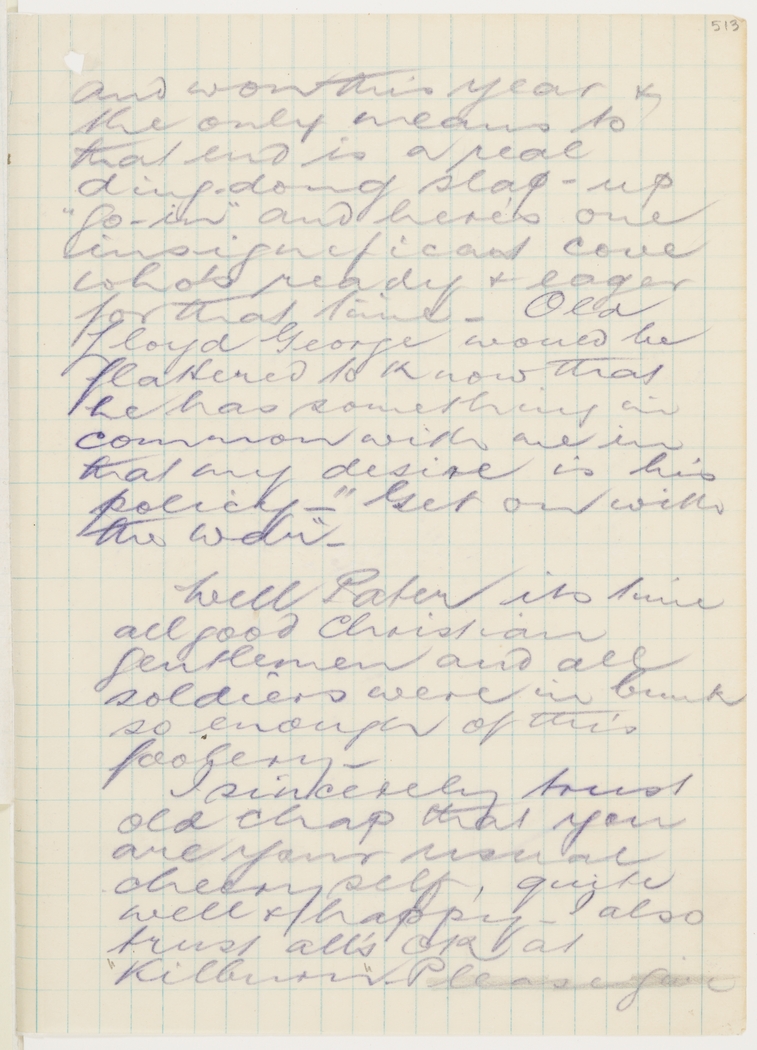 513
and won this year &
the only means to
that end is a real
ding-dong slap-up
"go-in" and here's one
insignificant cove
who's ready & eager
for that time - Old
Lloyd George would be
flattered to know that
he has something in
common with me in
that my desire is his
policy - "Get on with
the war" -
Well Pater its time
all good Christian
gentlemen and all
soldiers were in bunk
so enough of this
foolery -
I sincerely trust
old chap that you
are your usual
cheery self, quite
well & happy - I also
trust all's OK at
"Kilburn". Please give